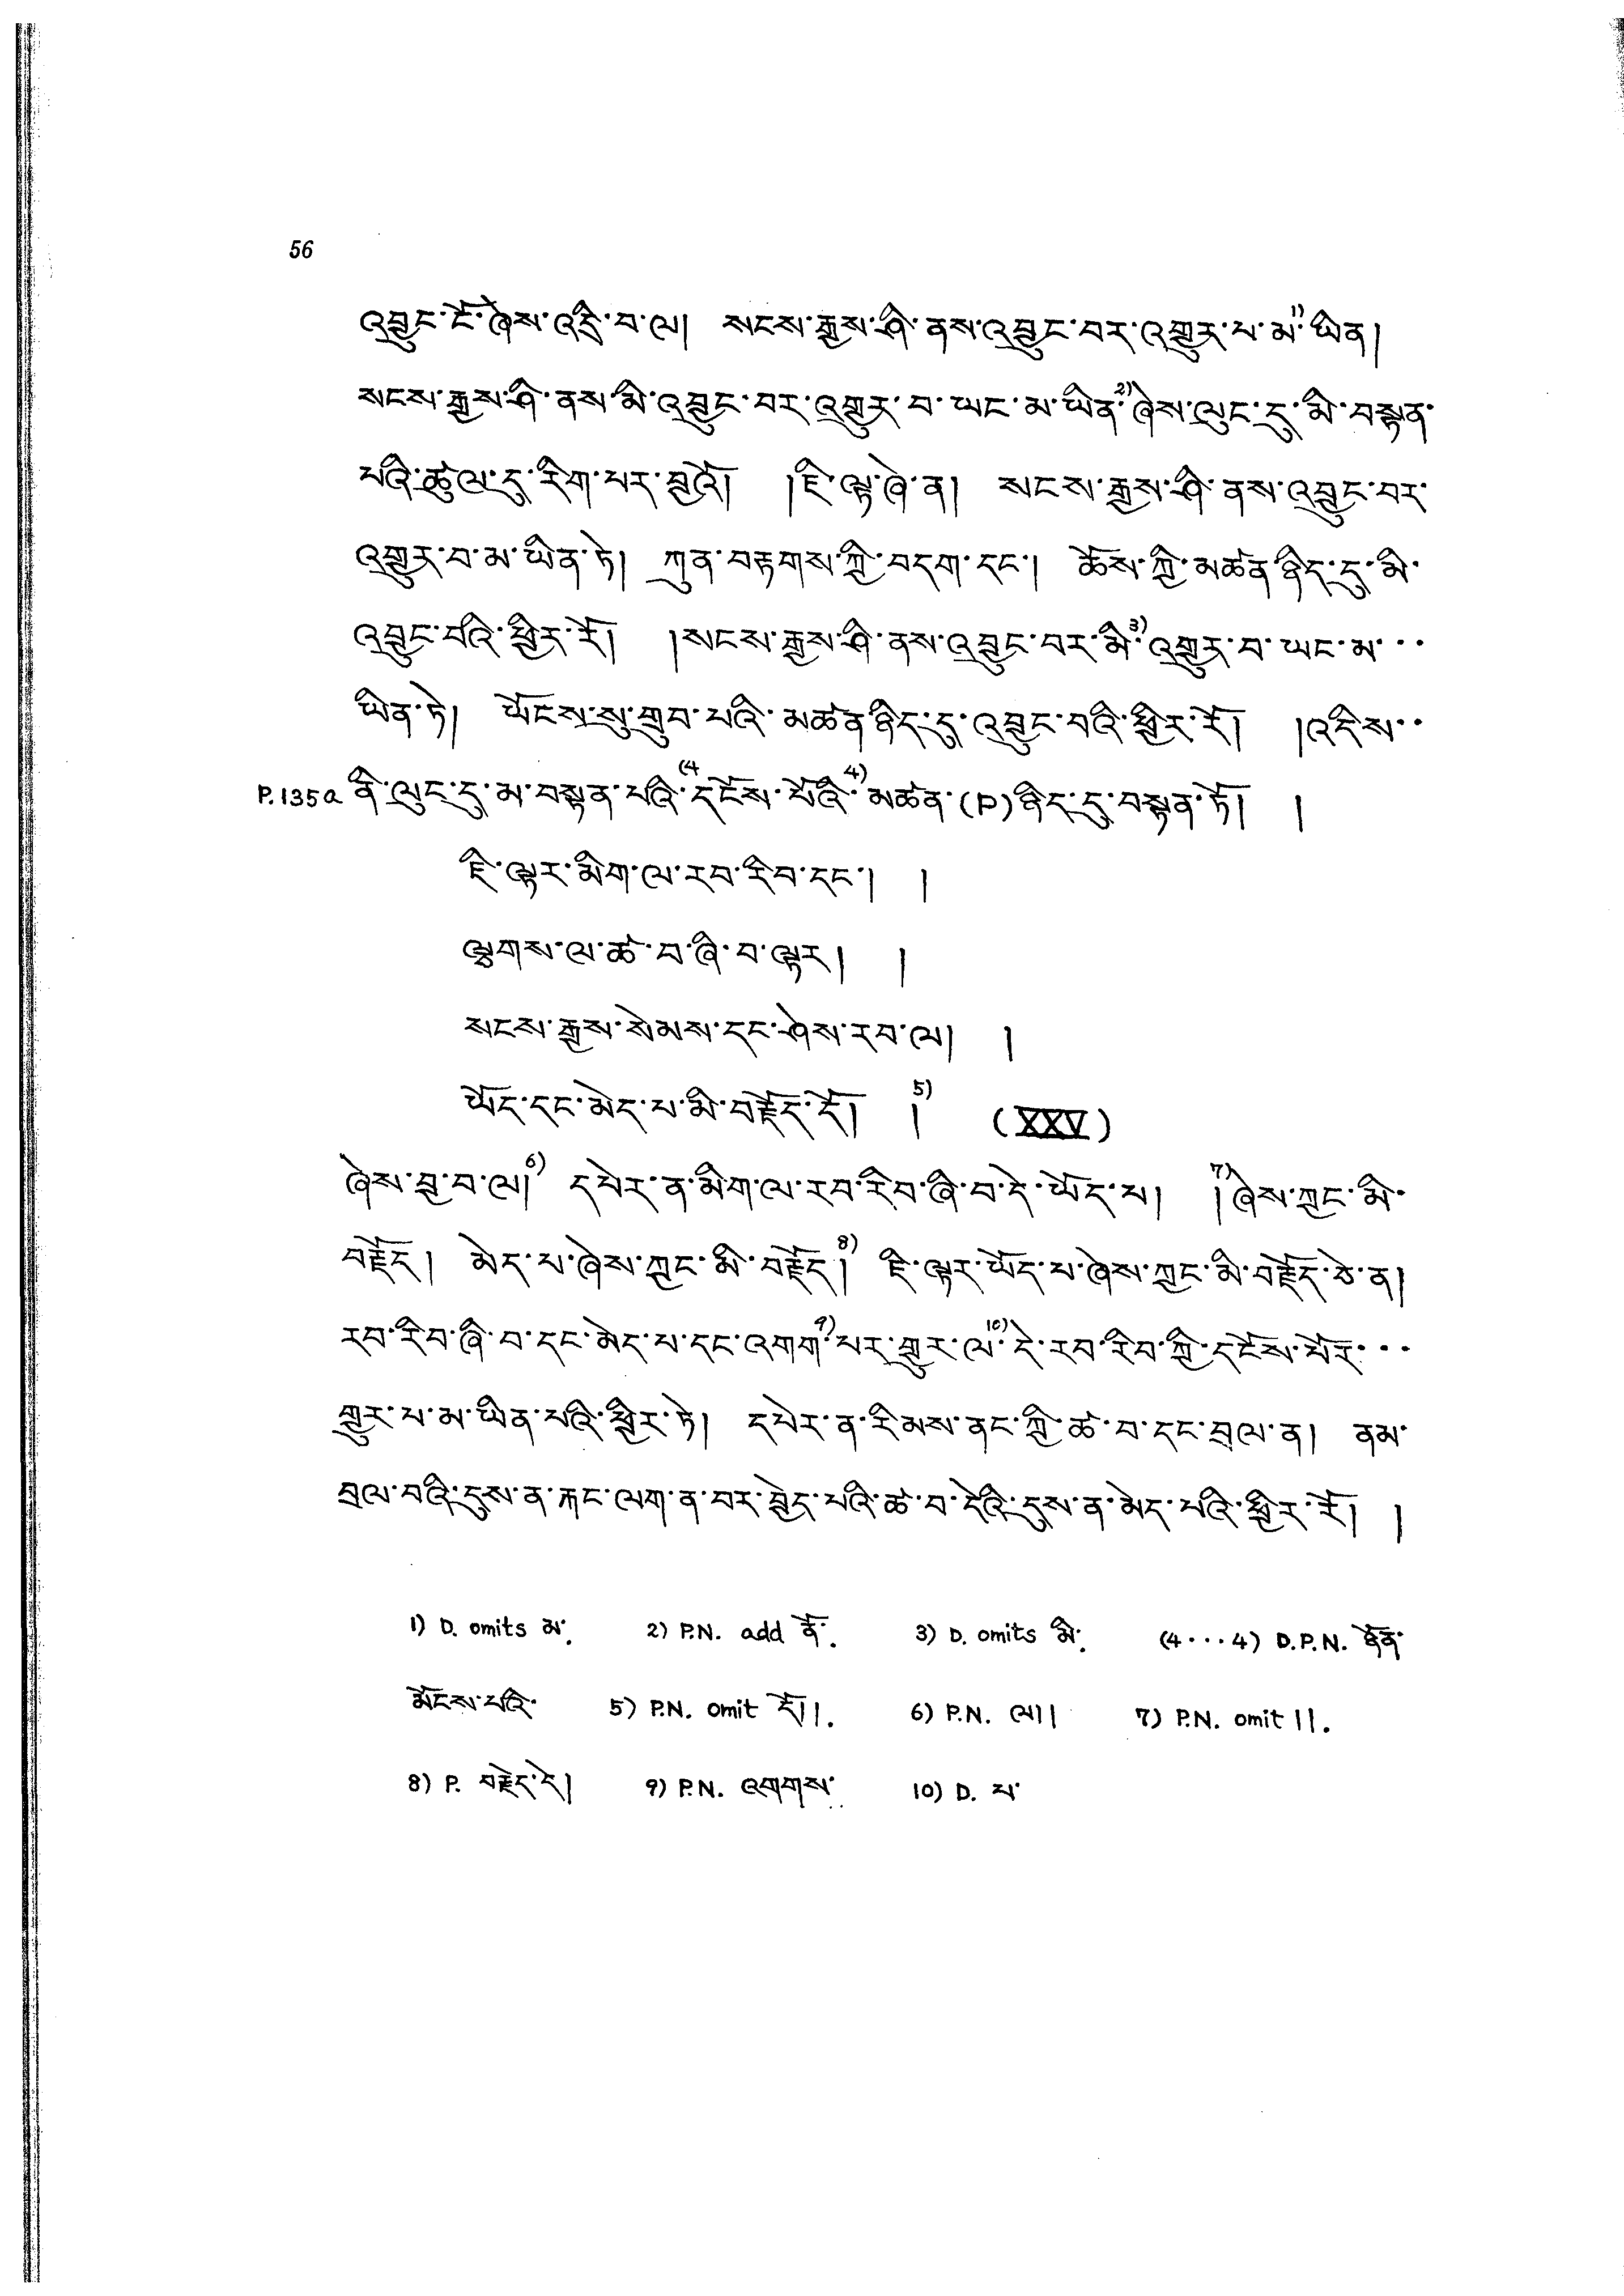 56
འབྱུང་ངོ་ཞེས་འདྲི་བ་ལ། སངས་རྒྱས་ཤི་ནས་འབྱུང་བར་འགྱུར་པ་མ་1)ཡིན།
སངས་རྒྱས་ཤི་ནས་མི་འབྱུང་བར་འགྱུར་བ་ཡང་མ་ཡིན་2)ཞེས་ལུང་དུ་མི་བསྟན་
པའི་ཚུལ་དུ་རིག་པར་བྱའོ། །ཇི་ལྟ་ཞེ་ན། སངས་རྒྱས་ཤི་ནས་འབྱུང་བར་
འགྱུར་བ་མ་ཡིན་ཏེ། ཀུན་བརྟགས་ཀྱི་བདག་དང་། ཆོས་ཀྱི་མཚན་ཉིད་དུ་མི་
འབྱུང་བའི་ཕྱིར་རོ། །སངས་རྒྱས་ཤི་ནས་འབྱུང་བར་མི་3)འགྱུར་བ་ཡང་མ་···
ཡིན་ཏེ། ཡོངས་སུ་གྲུབ་པའི་མཚན་ཉིད་དུ་འབྱུང་བའི་ཕྱིར་རོ། །འདིས་··
P.135a ནི་ལུང་དུ་མ་བསྟན་པའི་(4དངོས་པོའི་4)མཚན་(P)ཉིད་དུ་བསྟན་ཏོ། །
ཇི་ལྟར་མིག་ལ་རབ་རིབ་དང་། །
ལྕགས་ལ་ཚ་བ་ཞི་བ་ལྟར། །
སངས་རྒྱས་སེམས་དང་ཤེས་རབ་ལ། །
ཡོད་དང་མེད་པ་མི་བརྗོད་དོ། །5) (XXV)
ཞེས་བྱ་བ་ལ།6) དཔེར་ན་མིག་ལ་རབ་རིབ་ཞི་བ་དེ་ཡོད་པ། །7)ཞེས་ཀྱང་མི་
བརྗོད། མེད་པ་ཞེས་ཀྱང་མི་བརྗོད།8) ཇི་ལྟར་ཡོད་པ་ཞེས་ཀྱང་མི་བརྗོད་ཅེ་ན།
རབ་རིབ་ཞི་བ་དང་མེད་པ་དང་འགག་9)པར་གྱུར་ལ་10)དེ་རབ་རིབ་ཀྱི་དངོས་པོར་···
གྱུར་པ་མ་ཡིན་པའི་ཕྱིར་ཏེ། དཔེར་ན་རིམས་ནང་ཀྱི་ཚ་བ་དང་བྲལ་ན། ནམ་
བྲལ་བའི་དུས་ན་རྐང་ལག་ན་བར་བྱེད་པའི་ཚ་བ་དེའི་དུས་ན་མེད་པའི་ཕྱིར་རོ། །
1) D. omits མ་. 2) P.N. add ནོ་. 3) D. omits མི་. (4···4) D.P.N. ཉོན་
མོངས་པའི་ 5) P.N. omit དོ།།. 6) P.N. ལ།། 7) P.N. omit །།.
8) P. བརྗེད་དེ། 9) P.N. འགགས་ 10) D. པ་